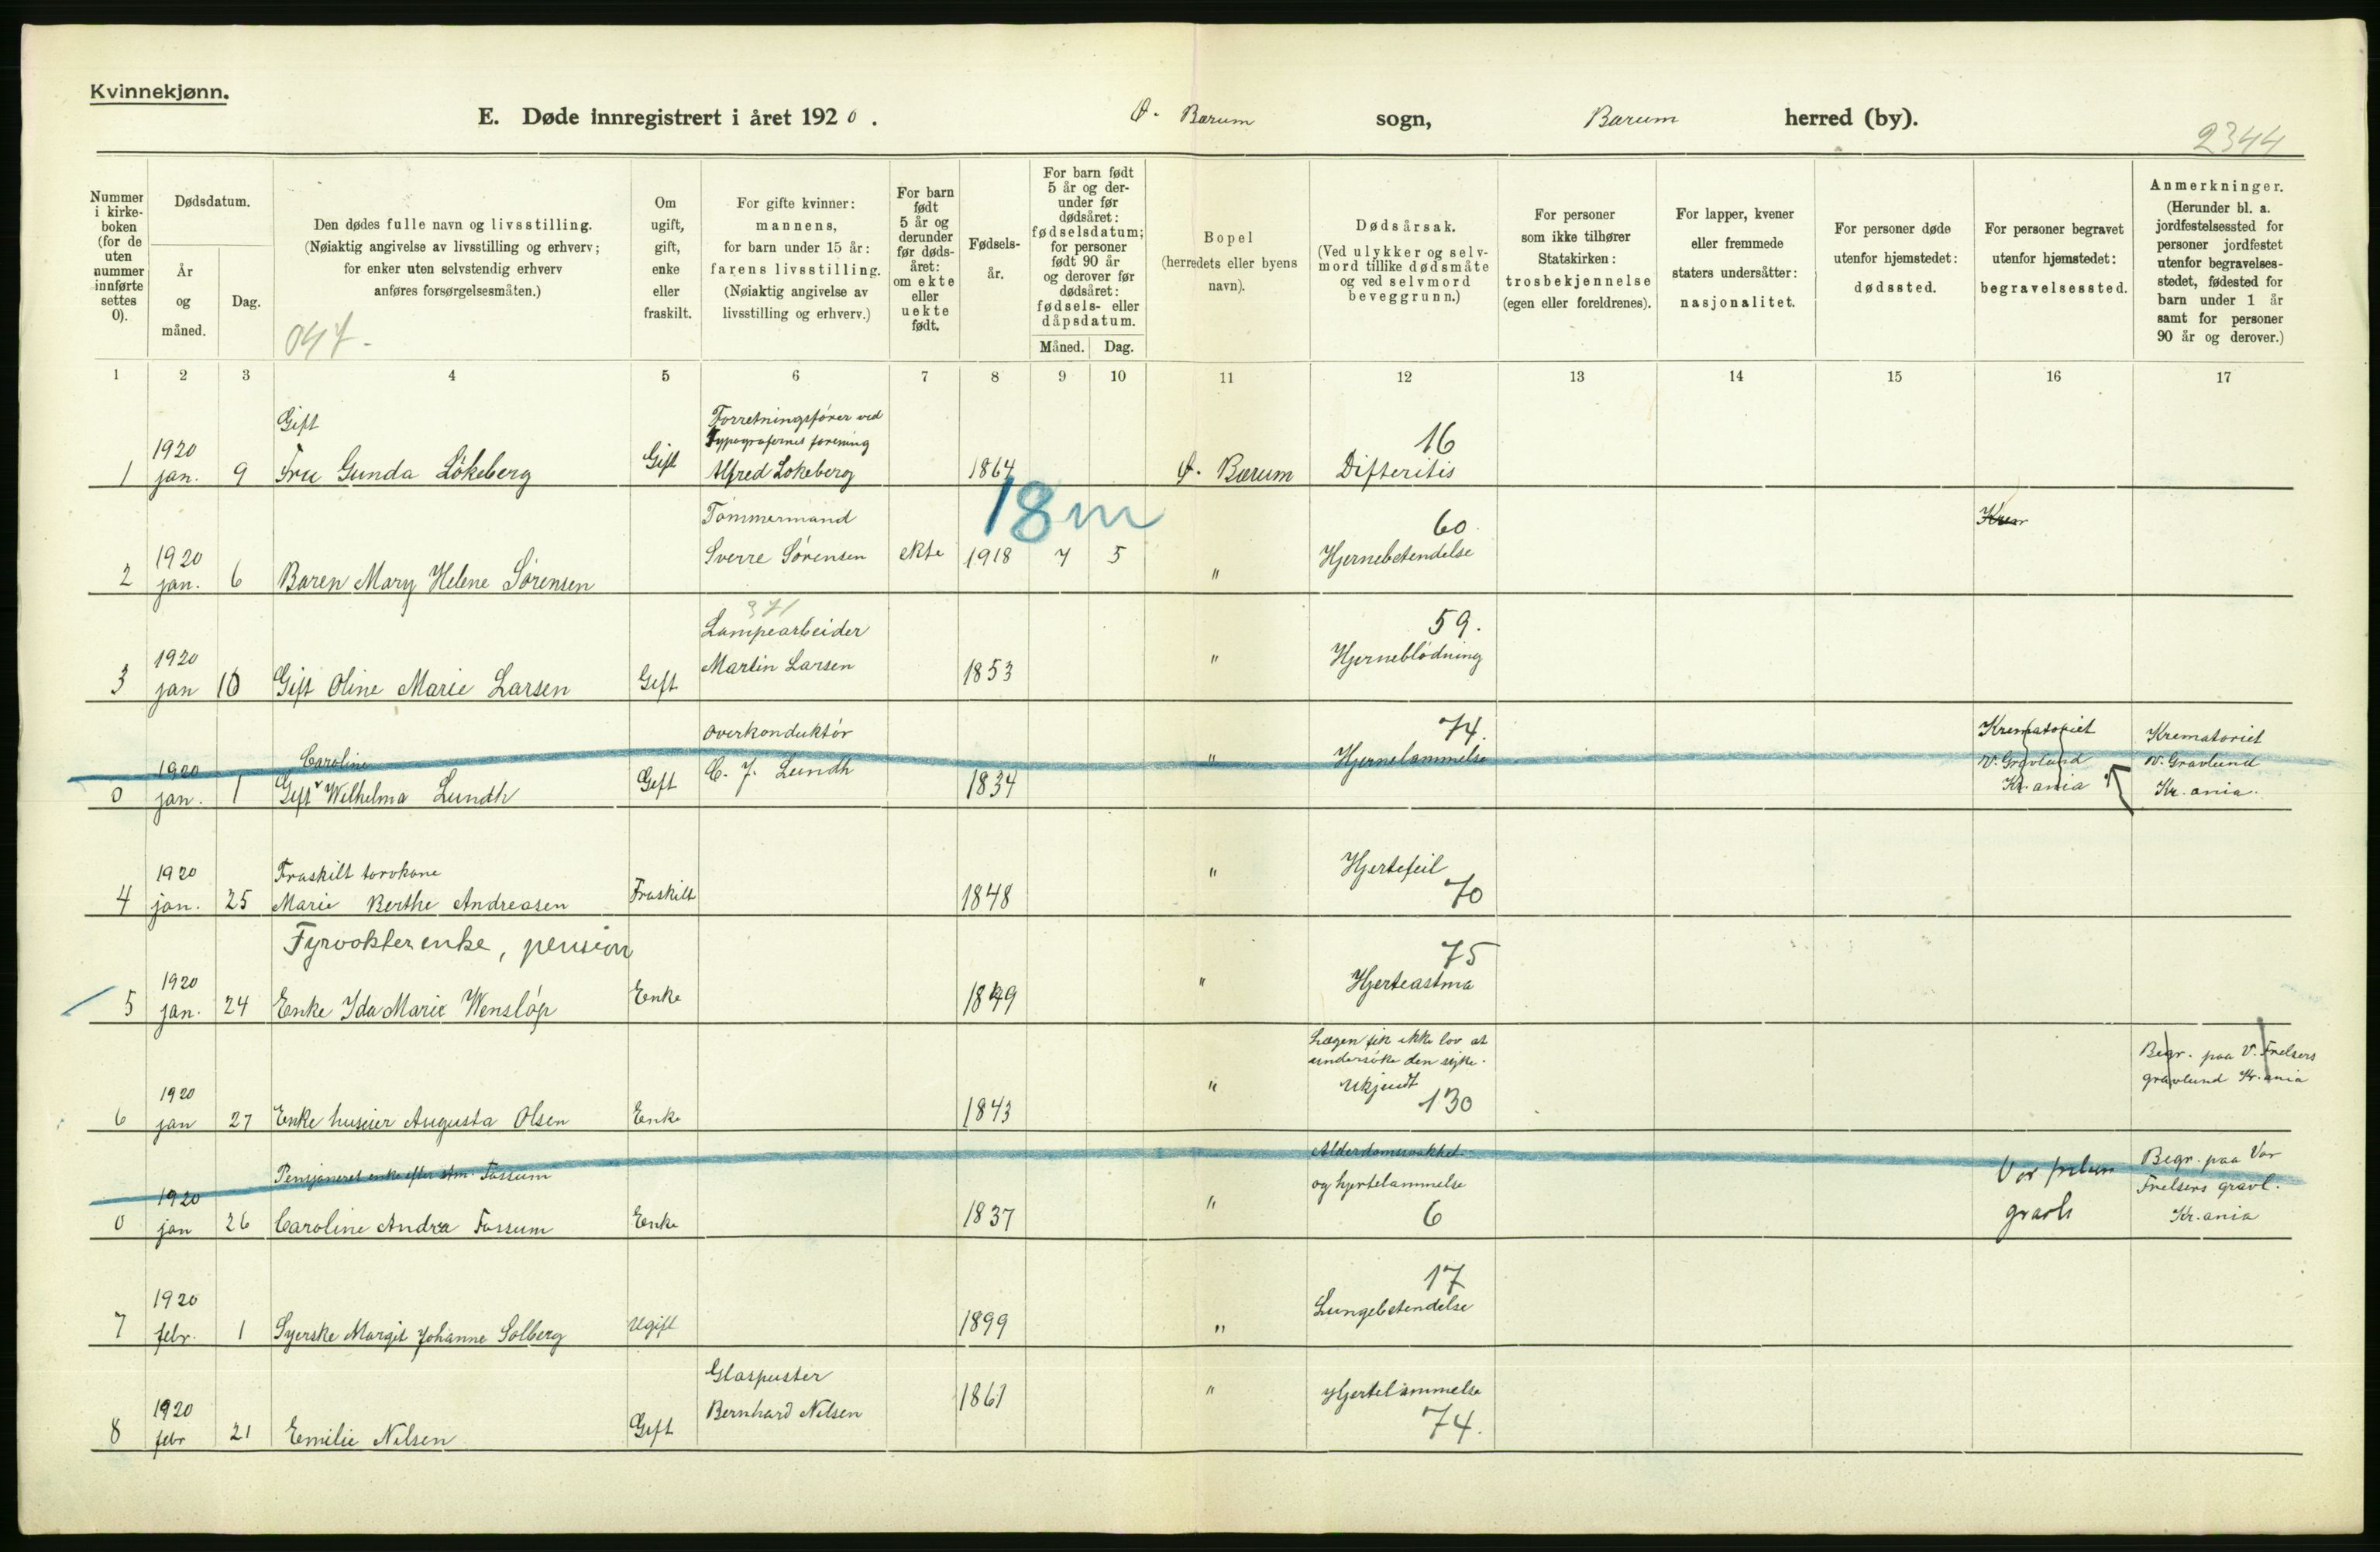 Kvinnekjønn.
E. Døde innregistrert i året 1920. Ø. Bærum sogn, Bærum herred (by).
2344
Nummer i kirkeboken (for de uten nummer innførte settes 0).
Dødsdatum.
År og måned.
Dag.
Den dødes fulle navn og livsstilling.
(Nøiaktig angivelse av livsstilling og erhverv;
for enker uten selvstendig erhverv
anføres forsørgelsesmåten.)
047-
Om ugift, gift, enke eller fraskilt.
For gifte kvinner:
mannens,
for barn under 15 år:
farens livsstilling.
(Nøiaktig angivelse av
livsstilling og erhverv.)
For barn født 5 år og derunder før dødsåret: om ekte eller uekte født.
Fødselsår.
For barn født 5 år og derunder før dødsåret: fødselsdatum; for personer født 90 år og derover før dødsåret: fødsels- eller dåpsdatum.
Måned. Dag.
Bopel
(herredets eller byens
navn).
Dødsårsak.
(Ved ulykker og selvmord tillike dødsmåte og ved selvmord beveggrunn.)
For personer
som ikke tilhører
Statskirken:
trosbekjennelse
(egen eller foreldrenes).
For lapper, kvener
eller fremmede
staters undersåtter:
nasjonalitet.
For personer døde
utenfor hjemstedet:
dødssted.
For personer begravet
utenfor hjemstedet:
begravelsessted.
Anmerkninger.
(Herunder bl. a.
jordfestelsessted for
personer jordfestet
utenfor begravelsesstedet, fødested for
barn under 1 år
samt for personer
90 år og derover.)
1 2 3 4 5 6 7 8 9 10 11 12 13 14 15 16 17
Gift
Forretningsfører ved
Typografernes forening
16
1 1920 jan. 9 Fru Gunda Løkeberg Gift Alfred Løkeberg 1864 Ø. Bærum Difteritis
18 m
Tømmermand
60
Krem
2 1920 jan. 6 Baren Mary Helene Sørensen Sverre Sørensen ekte 1918 7 5 " Hjernebetendelse
371
Lampearbeider
59.
3 1920 jan 10 Gift Oline Marie Larsen Gift Martin Larsen 1853 " Hjerneblødning
Overkonduktør
74.
Caroline
0 1920 jan. 1 Gift Wilhelma Lundh Gift C. J. Lundh 1834 " Hjernelammelse
Krematoriet
V. Gravlund
Kr.ania
Krematoriet
V. Gravlund
Kr.ania.
Fraskilt torvkone
4 1920 jan. 25 Marie Berthe Andreasen Fraskilt 1848 " Hjertefeil
70
Fyrvokter enke, pension
75
5 1920 jan. 24 Enke Ida Marie Wensløp Enke 1849 " Hjerteastma
Lægen fik ikke lov at
undersøke den syke.
Ukjendt
130
6 1920 jan 27 Enke husier Augusta Olsen Enke 1843 "
Begr. paa V. Frelsers
gravlund Kr.ania
Pensjoneret enke efter Am. Fossum
Alderdomssvakhet
og hjertelammelse
6
0 1920 jan 26 Caroline Andrea Fossum Enke 1837 "
Vor frelsers
gravl
Begr. paa Vor
Frelsers gravl.
Kr.ania
17
7 1920 febr. 1 Syerske Margit Johanne Solberg Ugift 1899 " Lungebetendelse
Glaspuster
8 1920 febr 21 Emilie Nilsen Gift Bernhard Nilsen 1861 " Hjertelammelse
74.